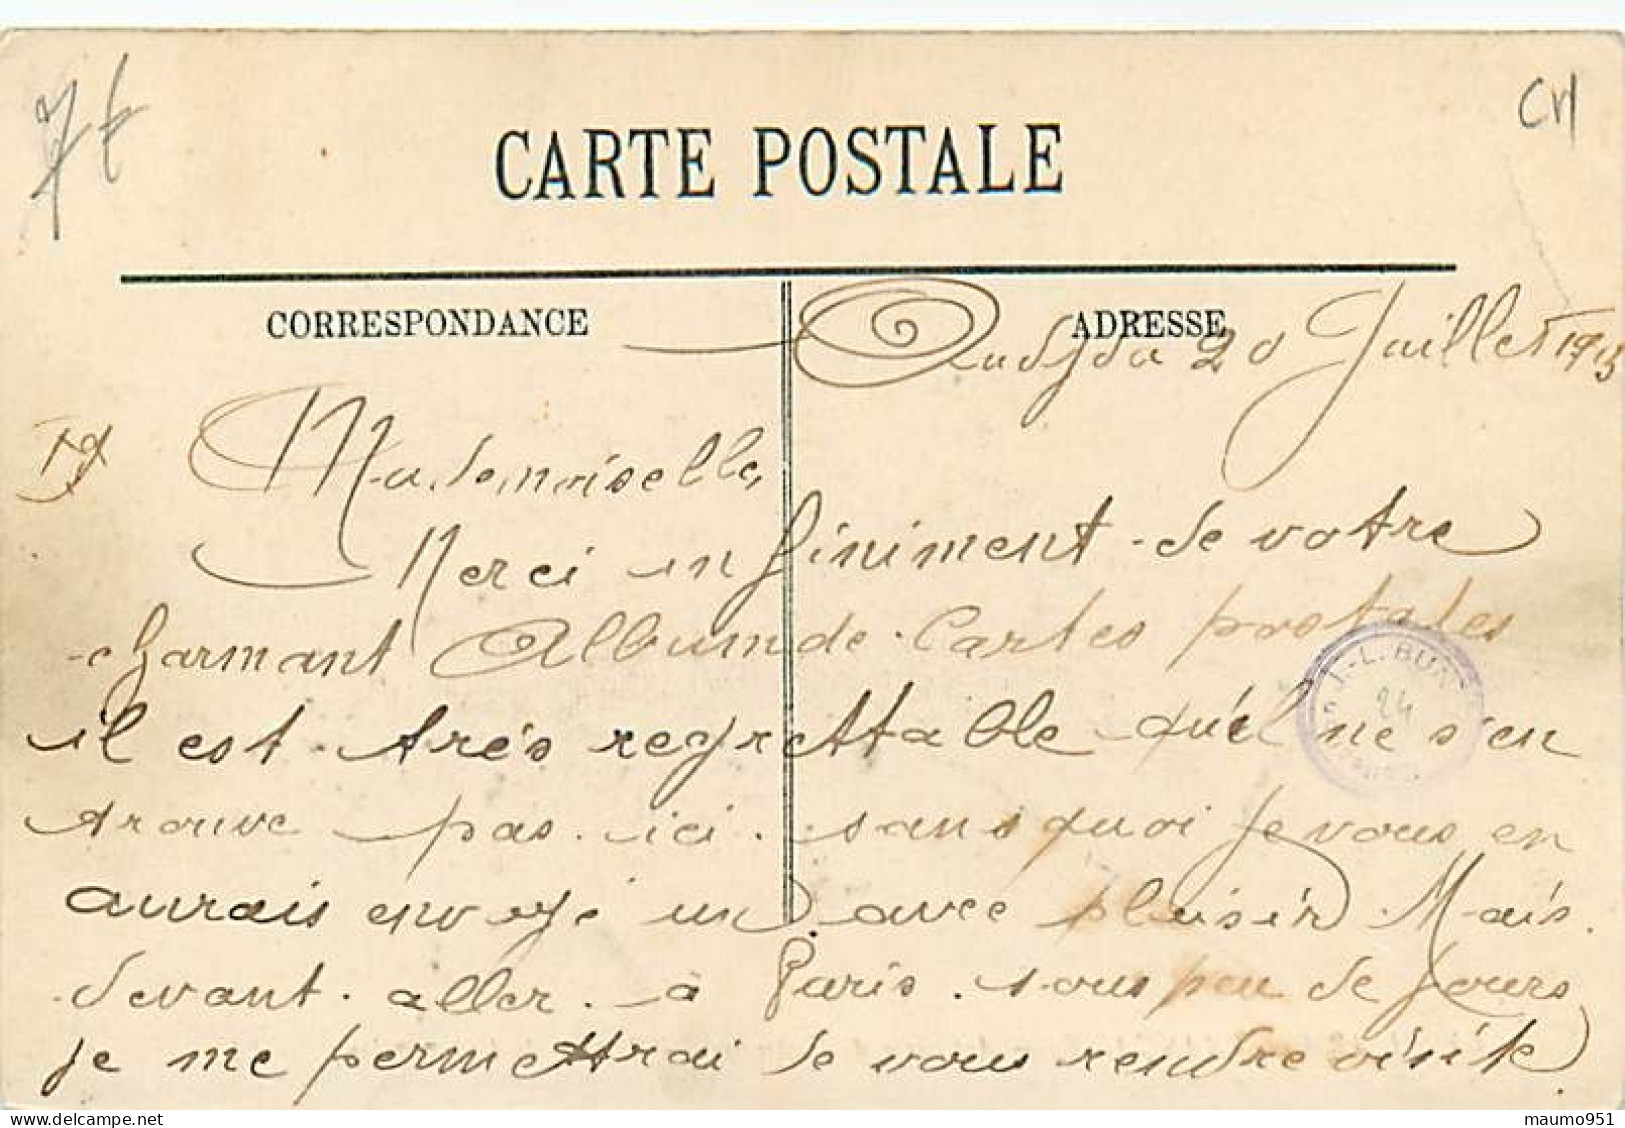 7f
CH
CARTE POSTALE
CORRESPONDANCE
ADRESSE
Oudjda 20 Juillet 1913
Mademoiselle,
Merci infiniment de votre
charmant Album de Cartes postales
il est très regrettable qu'il ne s'en
trouve pas ici. sans quoi je vous en
aurais envoyé un avec plaisir. Mais.
devant aller à Paris sous peu de jours
je me permettrai de vous rendre visite
J.-L. BU
24
maumo951